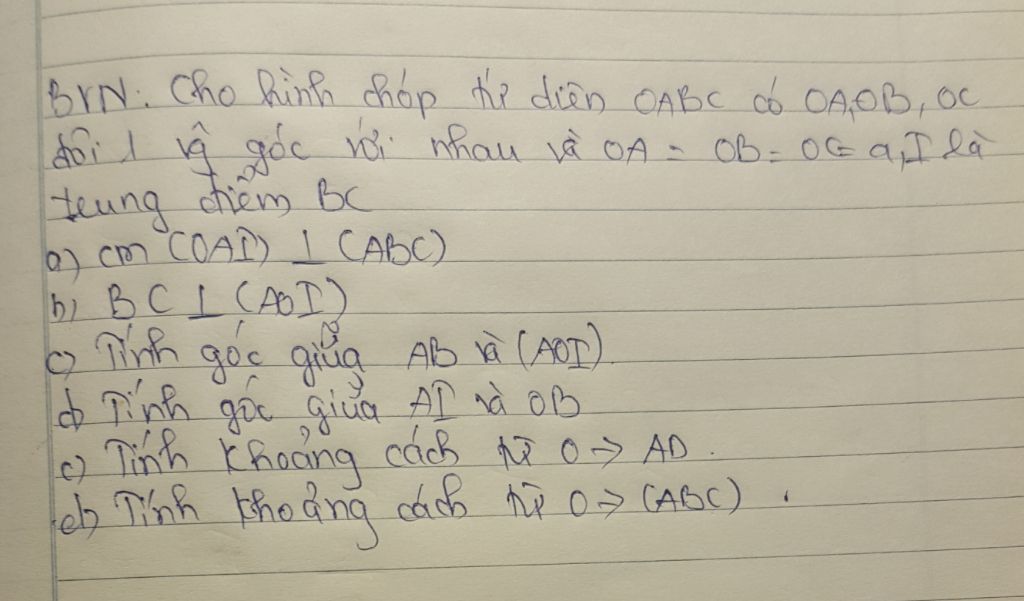 BVN. Cho hình chóp tứ diện OABC có OA,OB, OC
đôi 1 vg góc với nhau và OA = OB = OC= a, I là
trung điểm BC
a) cm (OAI) ⊥ (ABC)
b) BC ⊥ (AOI)
c) Tính góc giữa AB và (AOI).
d) Tính góc giữa AI và OB
c) Tính khoảng cách từ O → AD.
d) Tính khoảng cách từ O → (ABC).